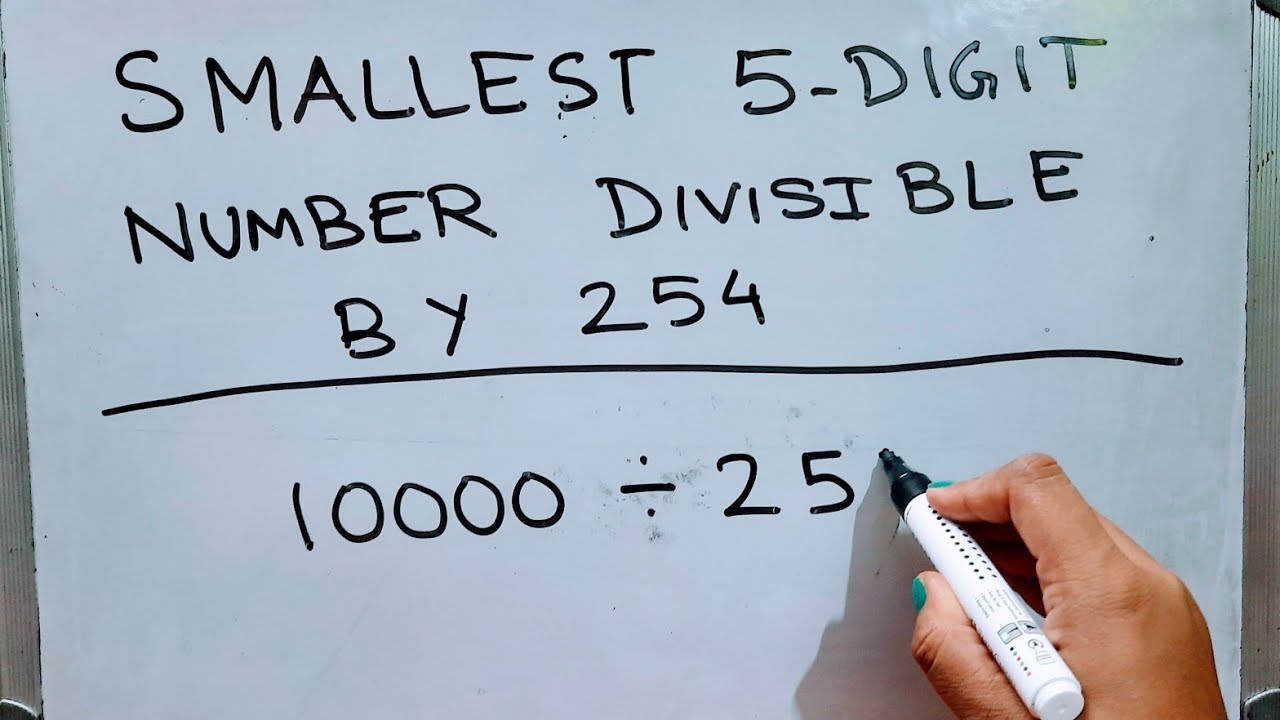 SMALLEST 5-DIGIT
NUMBER DIVISIBLE
BY 254
10000 ÷ 25